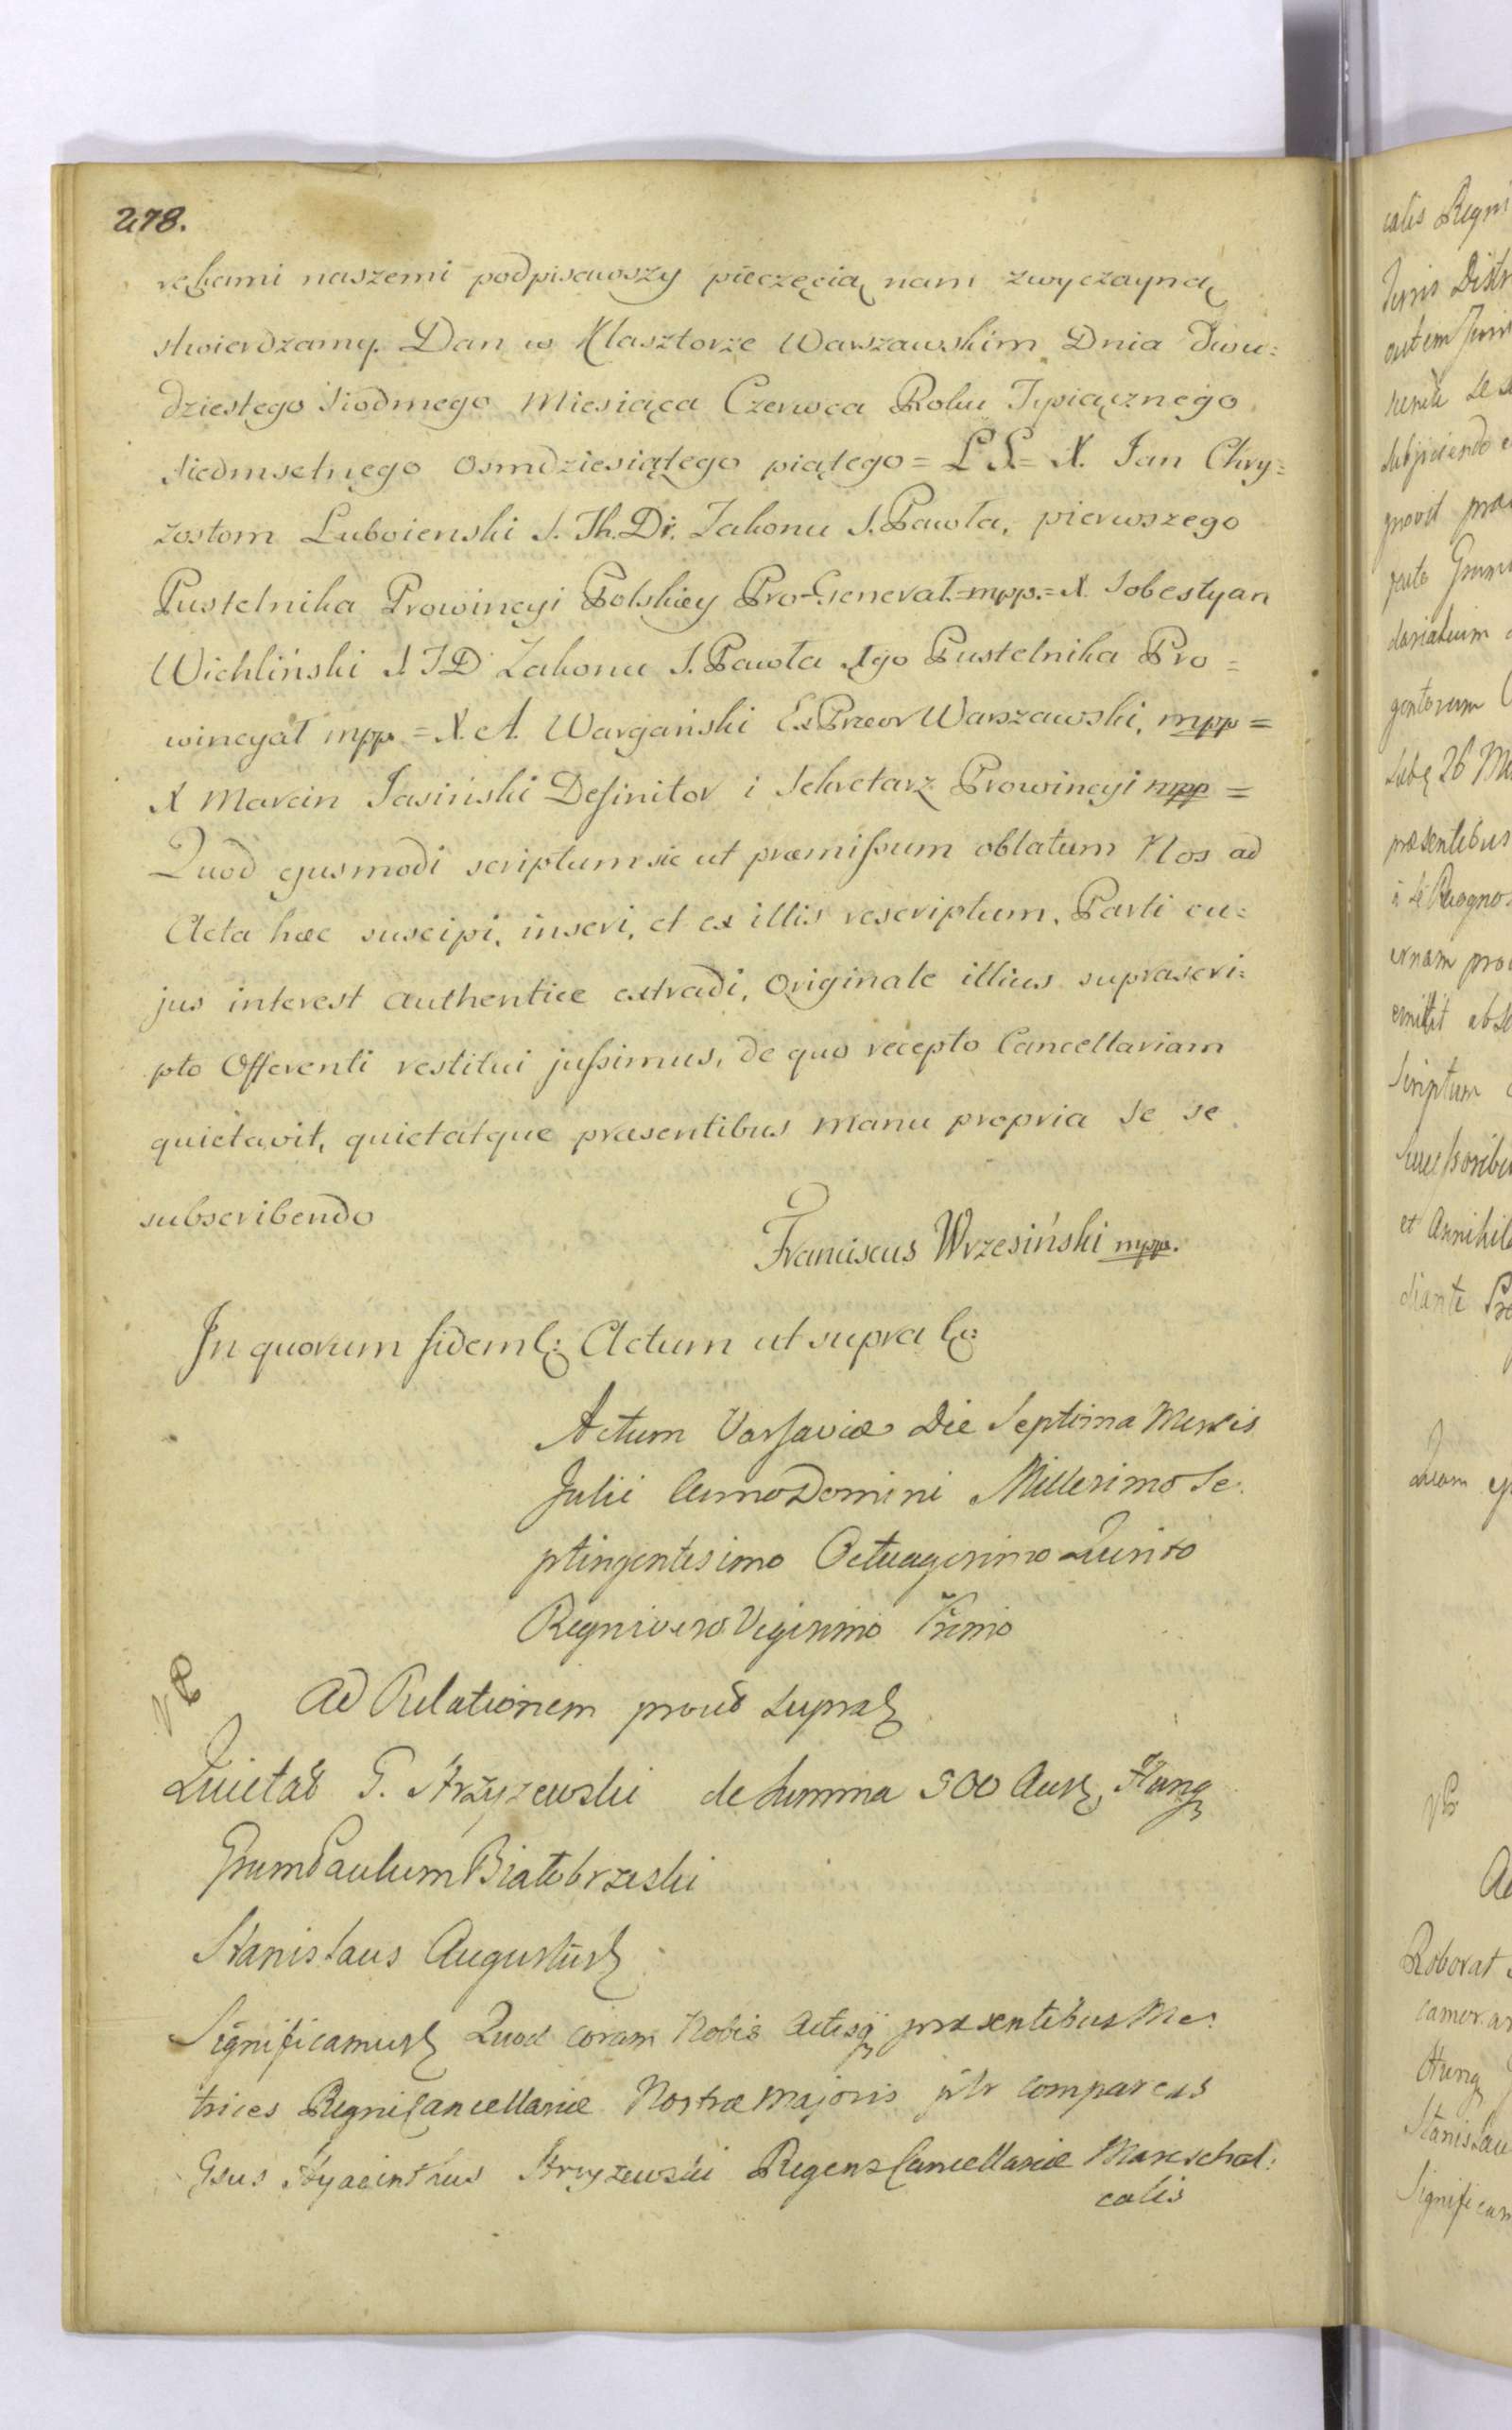 278.
rękami naszemi podpisawszy pieczęcią nam zwyczayną
stwierdzamy. Dan w Klasztorze Warszawskim Dnia dwu=
dziestego siodmego Miesiąca Czerwca Roku Tysiącznego
siedmsetnego osmdziesiątego piątego = L.S. = X. Jan Chry=
zostom Luboienski S. Th. Dr. Zakonu S. Pawła, pierwszego
Pustelnika Prowincyi Polskiey Pro-Generał = mpp. = X. Sobestyan
Wichliński S T D Zakonu S. Pawła 1go Pustelnika Pro=
wincyał mpp = X. A. Wargański ExPrzeor Warszawski, mpp =
X Marcin Jasiński Definitor i Sekretarz Prowincyi mpp =
Quod ejusmodi scriptum sic ut præmissum oblatum Nos ad
Acta hæc suscipi, inseri, et ex illis rescriptum, Parti cu=
jus interest authentice extradi, Originale illius suprascri=
pto Offerenti restitui jussimus, de quo recepto Cancellariam
quietavit, quietatque præsentibus manu propria se se
subscribendo
Franciscus Wrzesiński mpp.
In quorum fidem &: Actum ut supra &:
Actum Varsaviæ Die Septima Mensis
Julii Anno Domini Millesimo Se:
ptingentesimo Octuagesimo Quinto
Regni vero Vigesimo Primo
Ad Relationem proud supra &
Quietat G. Strzyzewski de Summa 500 Aur, Hung
Gnum Paulum Białobrzeski
Stanislaus Augustus &
Significamus & Quod coram Nobis Actisq præsentibus Me:
trices Regni Cancellariæ Nostræ Majoris pltr comparens
Gsus Hyacinthus Strzyzewski Regens Cancellariæ Mareschal:
calis
calis Regni
Juris Distr
autem
Subjiciendo
gnovit
dariatuum
gentorum
26
præsentibus
Scriptum
et Annihil
diante
Roborat
camerar
Hung
Stanislau
Significam